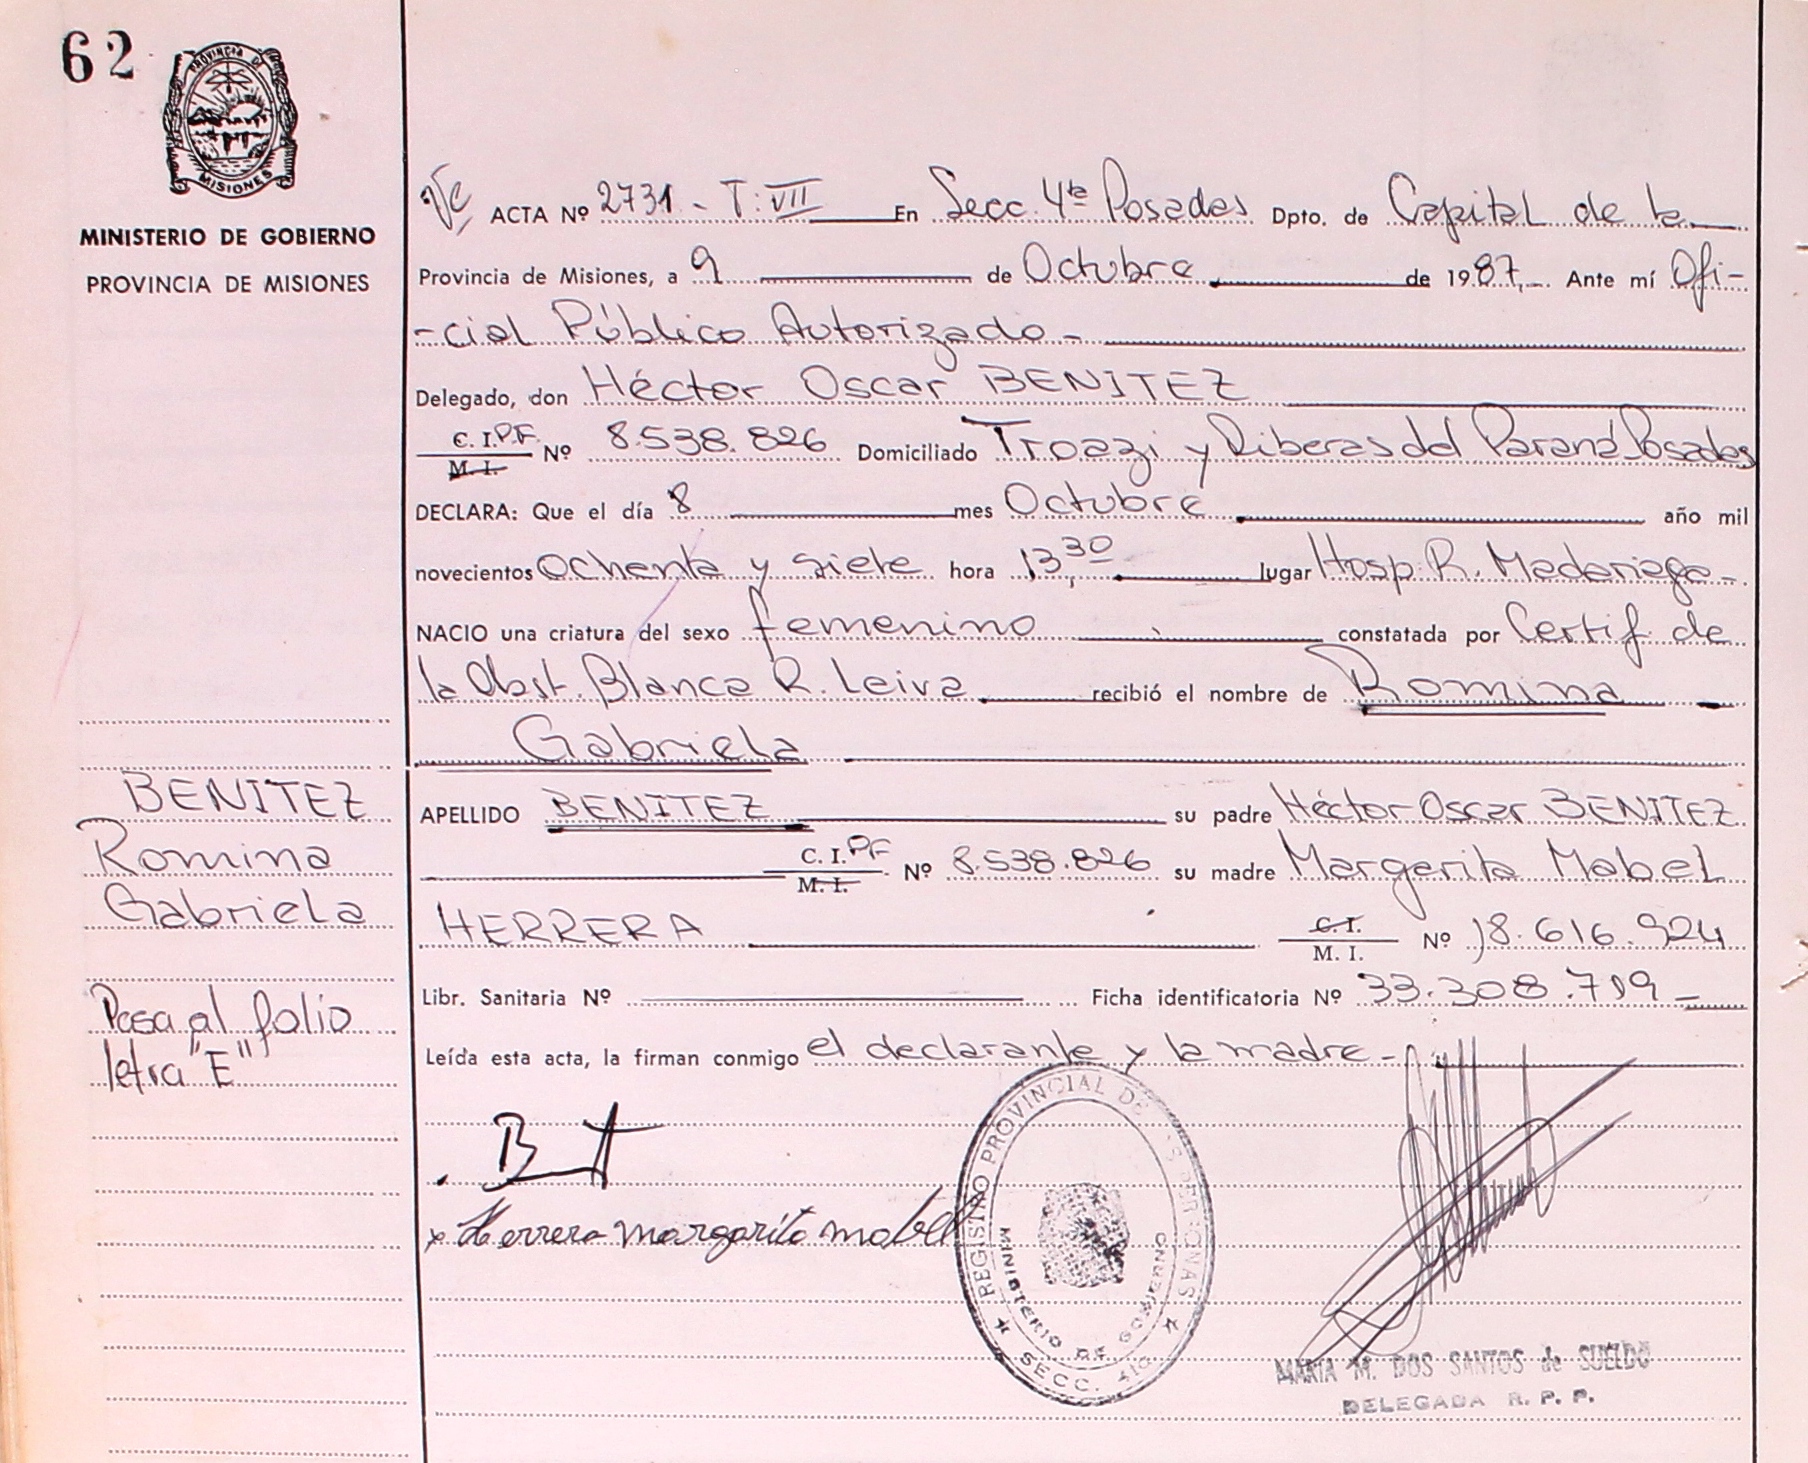 62
PROVINCIA DE
MISIONES
MINISTERIO DE GOBIERNO
PROVINCIA DE MISIONES
ACTA Nº 2731 - T: VII En Secc. 4ta Posadas Dpto. de Capital de la
Provincia de Misiones, a 9 de Octubre de 1987,- Ante mí Ofi-
-cial Público Autorizado-
Delegado, don Héctor Oscar BENITEZ
C. I. P.F. Nº 8.538.826 Domiciliado Troazzi y Riberas del Paraná Posadas
M. I.
DECLARA: Que el día 8 mes Octubre año mil
novecientos ochenta y siete hora 13,30 lugar Hosp. R. Madariaga-
NACIO una criatura del sexo femenino constatada por Certif de
la Obst. Blanca R. Leiva recibió el nombre de Romina
Gabriela
APELLIDO BENITEZ su padre Héctor Oscar BENITEZ
C. I. PF Nº 8.538.826 su madre Margarita Mabel
M. I.
HERRERA C. I. Nº 18.616.924
M. I.
Libr. Sanitaria Nº Ficha identificatoria Nº 33.308.719-
Leída esta acta, la firman conmigo el declarante y la madre-
BENITEZ
Romina
Gabriela
Pasa al folio
letra "E"
x Herrera margarita mabel
REGISTRO PROVINCIAL DE LAS PERSONAS
MINISTERIO DE GOBIERNO
SECC. 4ta
MARIA M. DOS SANTOS de SUELDO
DELEGADA R. P. P.